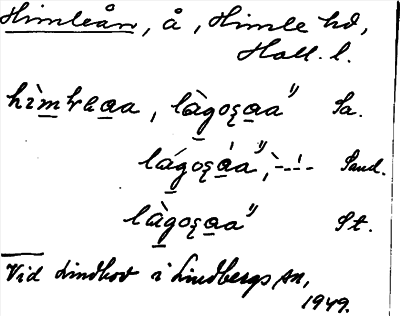 Himleån, å, Himle hd,
Hall. l.
hìmleaa, làgosaa" Sa.
lágosáa", `-.-!-. Sand.
làgosaa" St.
Vid Lindhov i Lindbergs sn,
1949.